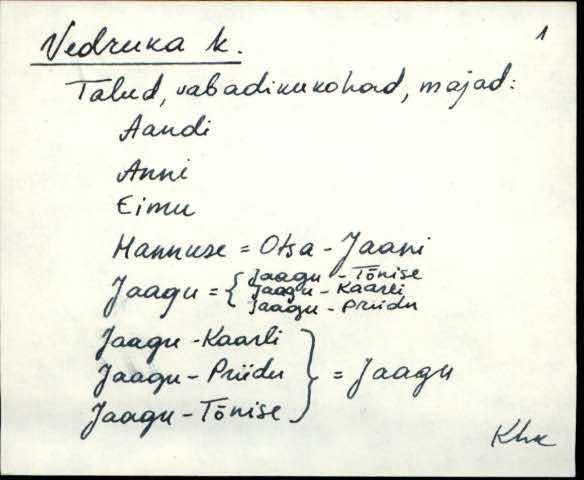 1
Vedruka k.
Talud, vabadikukohad, majad:
Aandi
Anni
Eimu
Hannuse = Otsa - Jaani
Jaagu = { Jaagu - Tõnise
Jaagu - Kaarli
Jaagu - Priidu
Jaagu - Kaarli
Jaagu - Priidu } = Jaagu
Jaagu - Tõnise
Khk